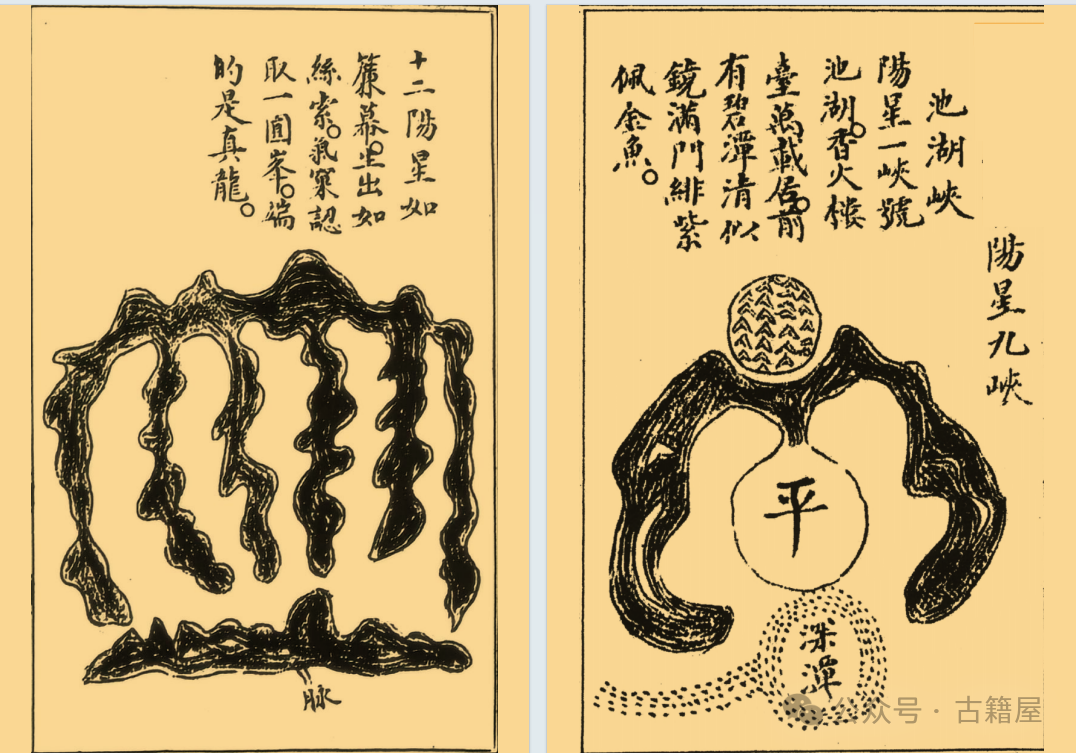 陽星九峽
池湖峽
陽星一峽號
池湖。香火樓
臺萬載居。前
有碧潭清似
鏡滿門緋紫
佩金魚。
平
深潭
十二陽星如
簾幕。生出如
絲索。氣窠認
取一圓峯。端
的是真龍。
脉
公众号 · 古籍屋